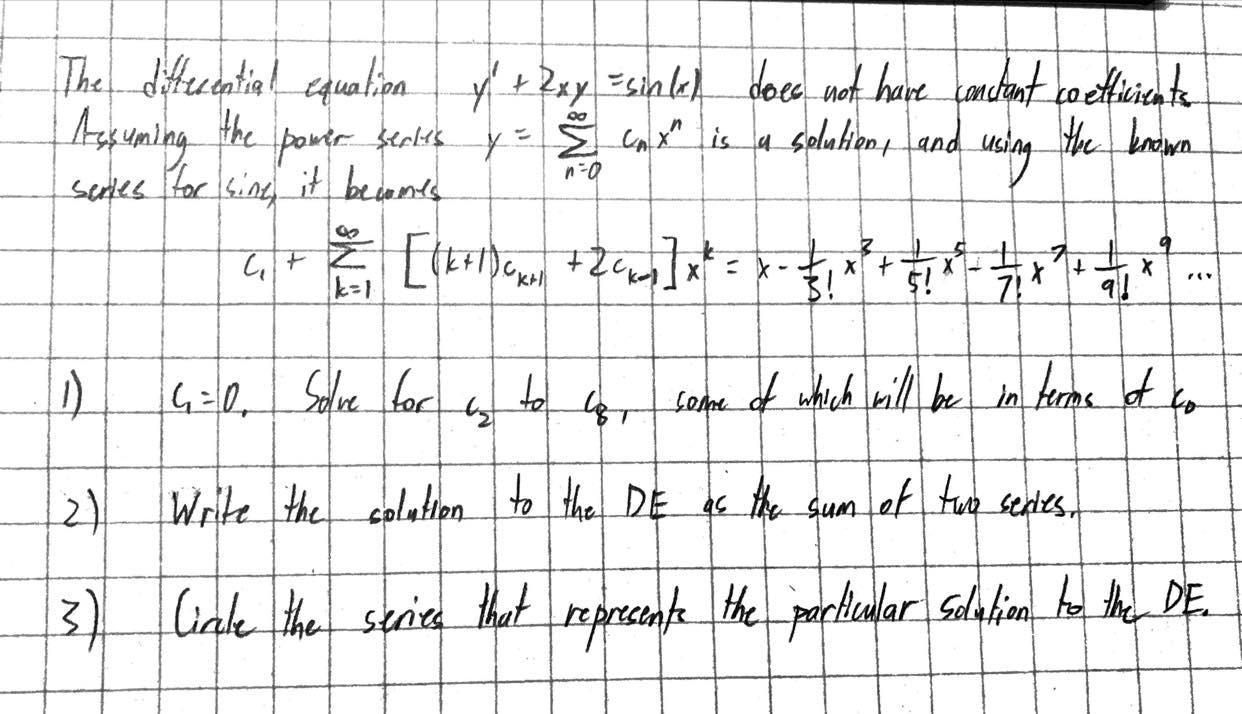 The differential equation y' + 2xy = sin(x) does not have constant coefficients.
Assuming the power series y = ∑_{n=0}^{∞} cₙxⁿ is a solution, and using the known
series for sine, it becomes
c₁ + ∑_{k=1}^{∞} [(k+1)c_{k+1} + 2c_{k-1}]x^k = x - 1/3! x³ + 1/5! x⁵ - 1/7! x⁷ + 1/9! x⁹ ...
1) c₁=0. Solve for c₂ to c₈, some of which will be in terms of c₀
2) Write the solution to the DE as the sum of two series.
3) Circle the series that represents the particular solution to the DE.